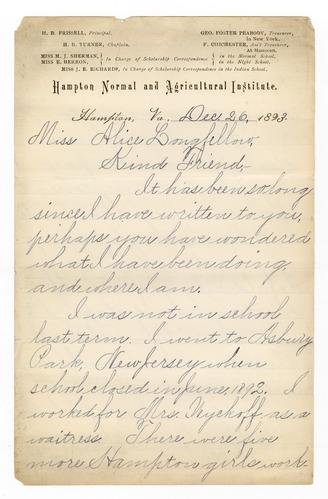 H. B. FRISSELL, Principal.
H. B. TURNER, Chaplain.
GEO. FOSTER PEABODY, Treasurer,
In New York.
F. CHICHESTER, Ass't Treasurer,
At Hampton.
MISS M. J. SHERMAN,
MISS E. HERRON, } In Charge of Scholarship Correspondence { in the Normal School.
in the Night School.
MISS J. E. RICHARDS, In Charge of Scholarship Correspondence in the Indian School.
Hampton Normal and Agricultural Institute.
Hampton, Va., Dec 26, 1893
Miss Alice Longfellow,
Kind Friend,-
It has been so long
since I have written to you,
perhaps you have wondered
what I have been doing,
and where I am.
I was not in school
last term. I went to Asbury
Park, New Jersey when
school closed in June, 1892. I
worked for Mrs. Wyckoff, as a
waitress. There were five
more Hampton girls work-